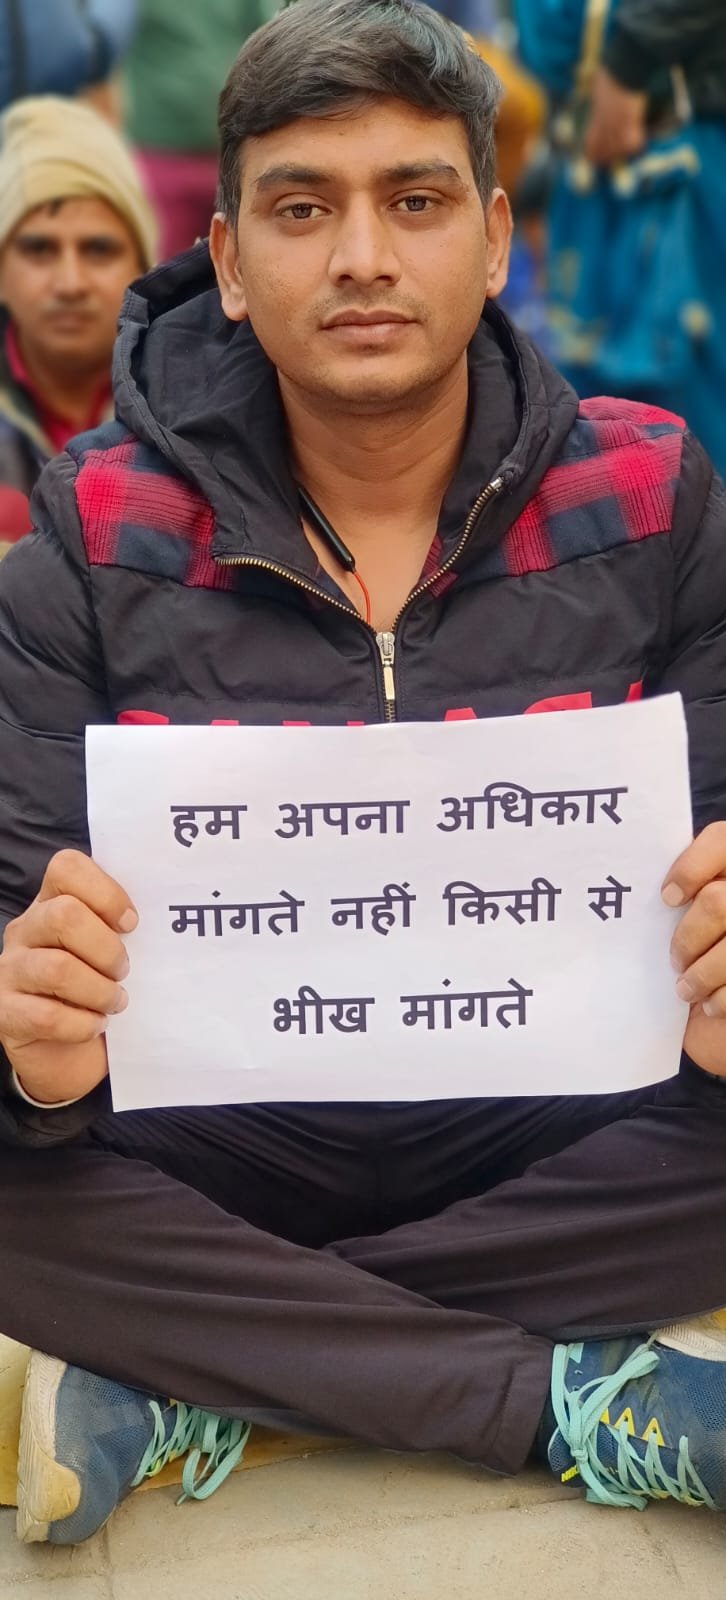 हम अपना अधिकार
मांगते नहीं किसी से
भीख मांगते